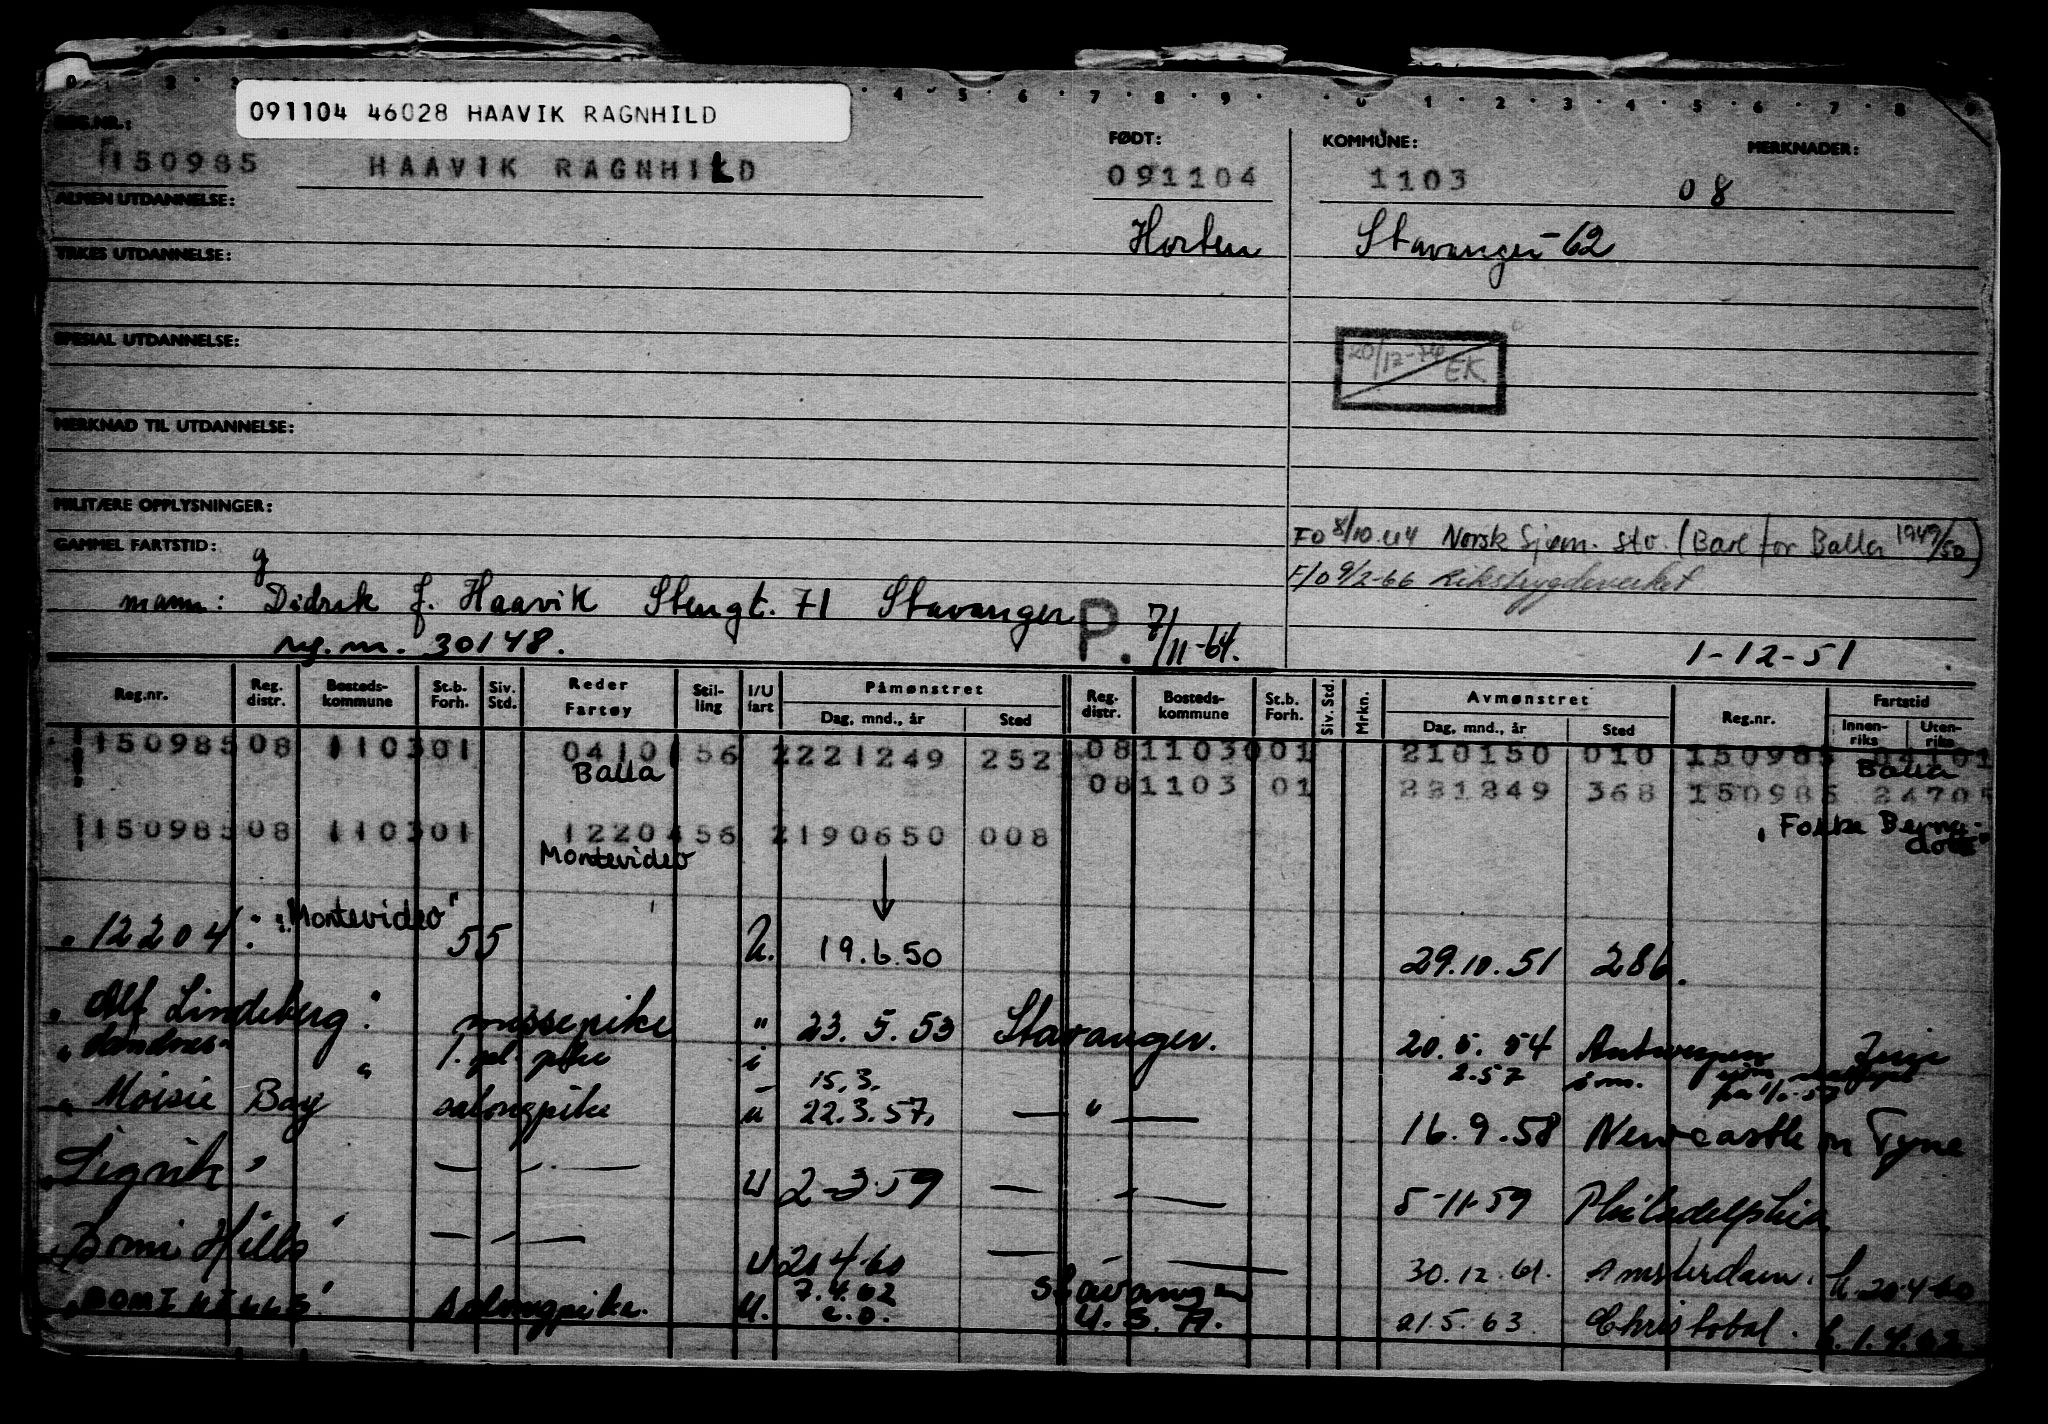 091104 46028 HAAVIK RAGNHILD
REG.NR.: FØDT: KOMMUNE: MERKNADER:
150985 HAAVIK RAGNHILD 091104 1103 08
ALMEN UTDANNELSE:
Horten Stavanger -62
YRKES UTDANNELSE:
SPESIAL UTDANNELSE:
20/12-74 EK
MERKNAD TIL UTDANNELSE:
MILITÆRE OPPLYSNINGER:
FO 8/10.44 Norsk Sjøm. stv. (Bare for Balla 1949/50)
GAMMEL FARTSTID: g
F/O 9/2-66 Rikstrygdeverket
mann: Didrik J. Haavik Stengt. 71 Stavanger P. 7/11-64.
reg.nr. 30148. 1-12-51
Reg.nr. Reg. distr. Bosteds-kommune St.b. Forh. Siv. Std. Reder Fartøy Stil-ling I/U fart Påmønstret Reg. distr. Bosteds-kommune St.b. Forh. Siv. Std. Mrkn. Avmønstret Reg.nr. Fartstid
Dag, mnd., år Sted Dag, mnd., år Sted Innen-riks Uten-riks
150985 08 1103 01 04101 56 2 221249 252 08 1103 0 01 210150 010 150985 04101
Balla Balla
08 1103 01 221249 368 150985 24705
150985 08 1103 01 12204 56 2 190650 008 "Folke Berna-
Montevideo dotte"
"12204: "Montevideo" 55 U. 19.6.50 29.10.51 286.
"Alf Lindeberg" messepike " 23.5.53 Stavanger. 20.5.54 Antwerpen
"Sandnes" 1. pl. pike i 15.3. 2.57
"Moisie Bay" salongpike u 22.3.57. — " — 16.9.58 Newcastle on Tyne
"Sigvik" — " — U 2-3-59 — " — 5-11-59 Philadelphia
"Bomi Hills" — " — U 20.4.60 — " — 30.12.61. Amsterdam. h 20.4.60
"BOMI HILLS" Salongpike. U. 7.4.62 Stavanger 21.5.63 Christobal. h. 1.4.62
e.o. U.S.A.